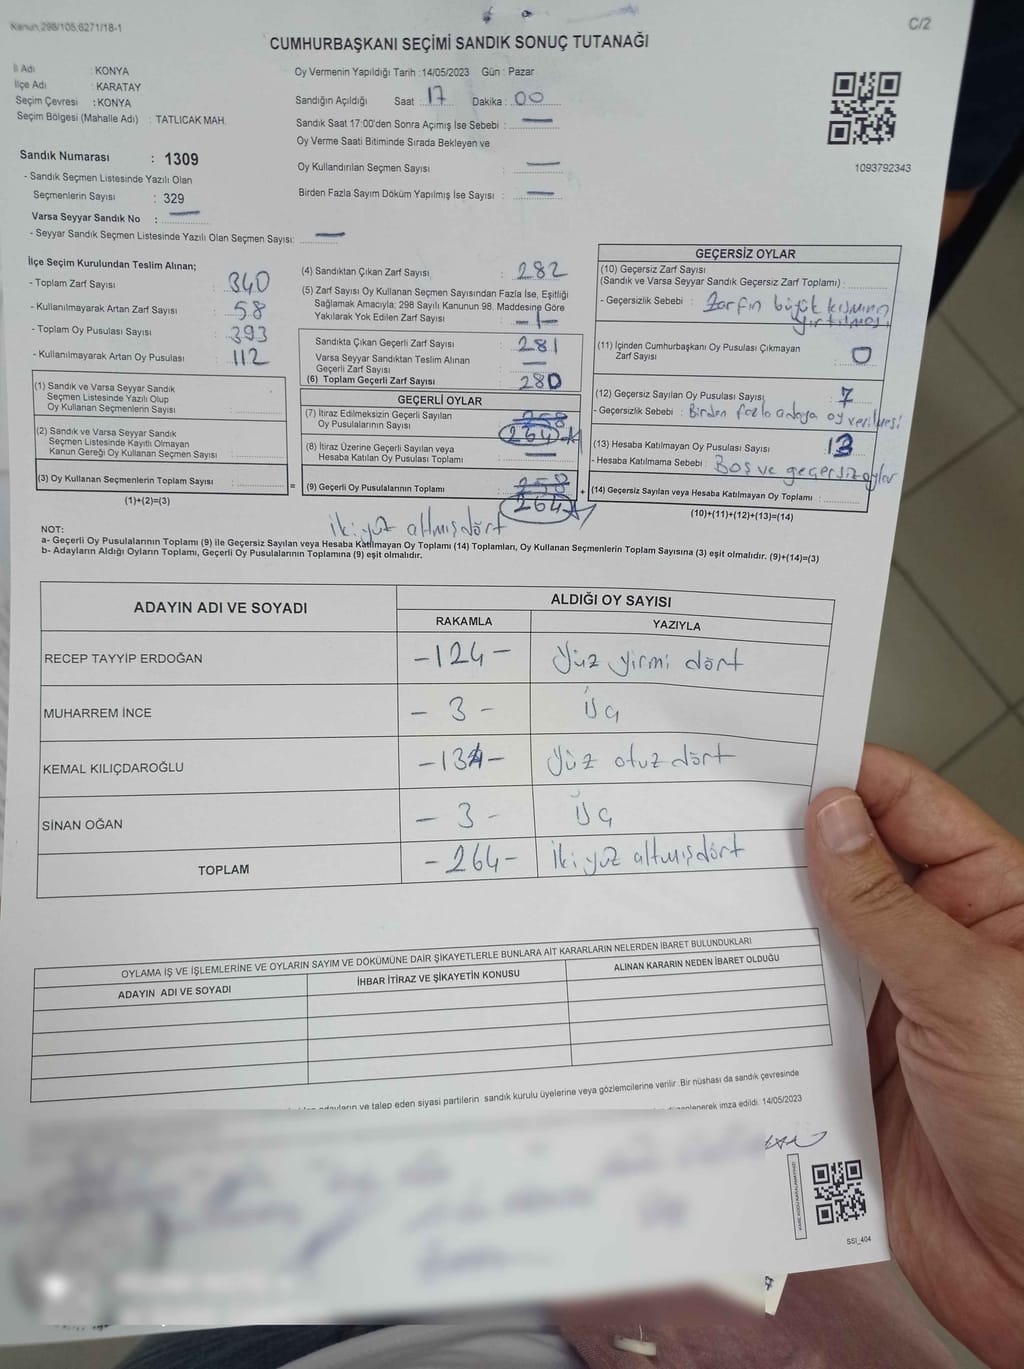 Kanun,298/105,6271/18-1
C/2
CUMHURBAŞKANI SEÇİMİ SANDIK SONUÇ TUTANAĞI
İl Adı : KONYA
İlçe Adı : KARATAY
Seçim Çevresi : KONYA
Seçim Bölgesi (Mahalle Adı) : TATLICAK MAH.
Sandık Numarası : 1309
- Sandık Seçmen Listesinde Yazılı Olan
Seçmenlerin Sayısı : 329
Varsa Seyyar Sandık No : —
- Seyyar Sandık Seçmen Listesinde Yazılı Olan Seçmen Sayısı: —
Oy Vermenin Yapıldığı Tarih : 14/05/2023 Gün : Pazar
Sandığın Açıldığı Saat : 17 Dakika : 00
Sandık Saat 17:00'den Sonra Açımış İse Sebebi : —
Oy Verme Saati Bitiminde Sırada Bekleyen ve
Oy Kullandırılan Seçmen Sayısı : —
Birden Fazla Sayım Döküm Yapılmış İse Sayısı : —
1093792343
İlçe Seçim Kurulundan Teslim Alınan;
- Toplam Zarf Sayısı : 340
- Kullanılmayarak Artan Zarf Sayısı : 58
- Toplam Oy Pusulası Sayısı : 393
- Kullanılmayarak Artan Oy Pusulası : 112
(1) Sandık ve Varsa Seyyar Sandık
Seçmen Listesinde Yazılı Olup
Oy Kullanan Seçmenlerin Sayısı :
(2) Sandık ve Varsa Seyyar Sandık
Seçmen Listesinde Kayıtlı Olmayan
Kanun Gereği Oy Kullanan Seçmen Sayısı :
(3) Oy Kullanan Seçmenlerin Toplam Sayısı :
(1)+(2)=(3)
(4) Sandıktan Çıkan Zarf Sayısı : 282
(5) Zarf Sayısı Oy Kullanan Seçmen Sayısından Fazla İse, Eşitliği
Sağlamak Amacıyla; 298 Sayılı Kanunun 98. Maddesine Göre
Yakılarak Yok Edilen Zarf Sayısı : -1-
Sandıkta Çıkan Geçerli Zarf Sayısı : 281
Varsa Seyyar Sandıktan Teslim Alınan
Geçerli Zarf Sayısı : —
(6) Toplam Geçerli Zarf Sayısı : 280
GEÇERLİ OYLAR
(7) İtiraz Edilmeksizin Geçerli Sayılan
Oy Pusulalarının Sayısı : 258
264
(8) İtiraz Üzerine Geçerli Sayılan veya
Hesaba Katılan Oy Pusulası Toplamı : —
= (9) Geçerli Oy Pusulalarının Toplamı : 258 +
264
iki yüz altmışdört
GEÇERSİZ OYLAR
(10) Geçersiz Zarf Sayısı
(Sandık ve Varsa Seyyar Sandık Geçersiz Zarf Toplamı) :
- Geçersizlik Sebebi : Zarfın büyük kısmının
yırtılması
(11) İçinden Cumhurbaşkanı Oy Pusulası Çıkmayan
Zarf Sayısı : 0
(12) Geçersiz Sayılan Oy Pusulası Sayısı : 7
- Geçersizlik Sebebi : Birden fazla adaya oy verilmesi
(13) Hesaba Katılmayan Oy Pusulası Sayısı : 13
- Hesaba Katılmama Sebebi : Boş ve geçersiz oylar
(14) Geçersiz Sayılan veya Hesaba Katılmayan Oy Toplamı :
(10)+(11)+(12)+(13)=(14)
NOT:
a- Geçerli Oy Pusulalarının Toplamı (9) ile Geçersiz Sayılan veya Hesaba Katılmayan Oy Toplamı (14) Toplamları, Oy Kullanan Seçmenlerin Toplam Sayısına (3) eşit olmalıdır. (9)+(14)=(3)
b- Adayların Aldığı Oyların Toplamı, Geçerli Oy Pusulalarının Toplamına (9) eşit olmalıdır.
ADAYIN ADI VE SOYADI
ALDIĞI OY SAYISI
RAKAMLA YAZIYLA
RECEP TAYYİP ERDOĞAN -124- Yüz yirmi dört
MUHARREM İNCE - 3 - Üç
KEMAL KILIÇDAROĞLU -134- Yüz otuz dört
SİNAN OĞAN - 3 - Üç
TOPLAM -264- İki yüz altmışdört
OYLAMA İŞ VE İŞLEMLERİNE VE OYLARIN SAYIM VE DÖKÜMÜNE DAİR ŞİKAYETLERLE BUNLARA AİT KARARLARIN NELERDEN İBARET BULUNDUKLARI
ADAYIN ADI VE SOYADI İHBAR İTİRAZ VE ŞİKAYETİN KONUSU ALINAN KARARIN NEDEN İBARET OLDUĞU
ve talep eden siyasi partilerin sandık kurulu üyelerine veya gözlemcilerine verilir. Bir nüshası da sandık çevresinde
imza edildi. 14/05/2023
SSI_404